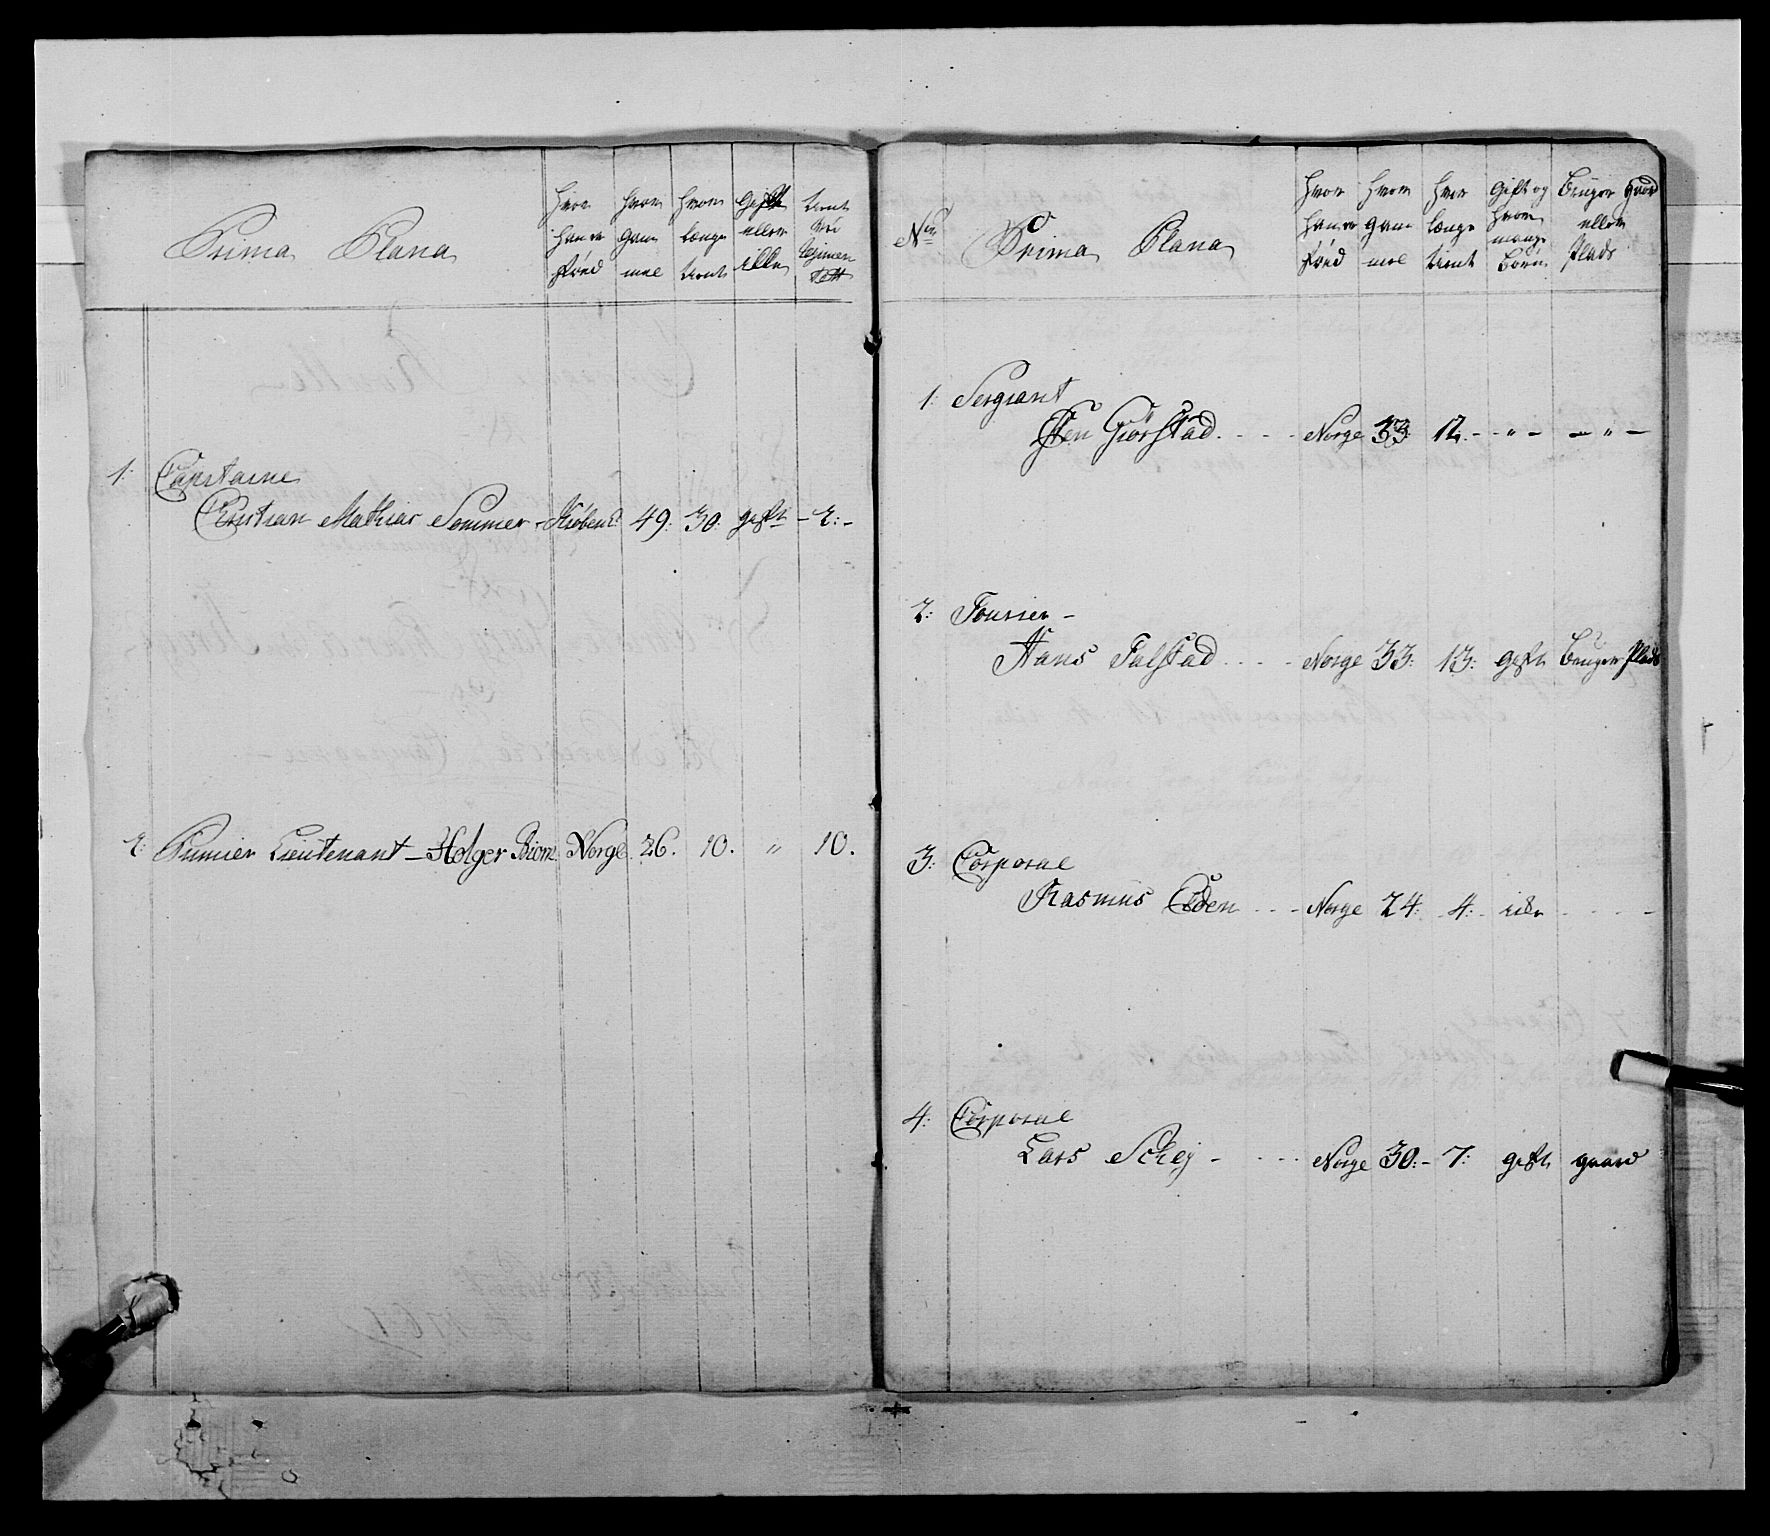 Prima Plana
Hvor han er fød
Hvor gam mel
Hvor længe tient
Gift eller
tient ved
1: Capitaine
Christian Mathias Sommer - Kiøbenh: 49: 30: gift - 2: -
2: Premier Lieutenant - Holger Biørn Norge 26. 10. " 10.
No Prima Plana
Hvor han er fød
Hvor gam mel
Hvor længe tient
Gift og hvor mange Børn
Bruger gaard eller Plads
1: Sergiant
Sten Giørstad. - - - Norge 33: 12: - - " - - " -
2: Fourier -
Hans Falstad - - - Norge 33: 13: gift Bruger Plads
3: Corporal
Rasmus Elden - - - Norge 24: 4: - - - -
4: Corporal
Lars Schej - - - - Norge 30: - 7: gift gaard